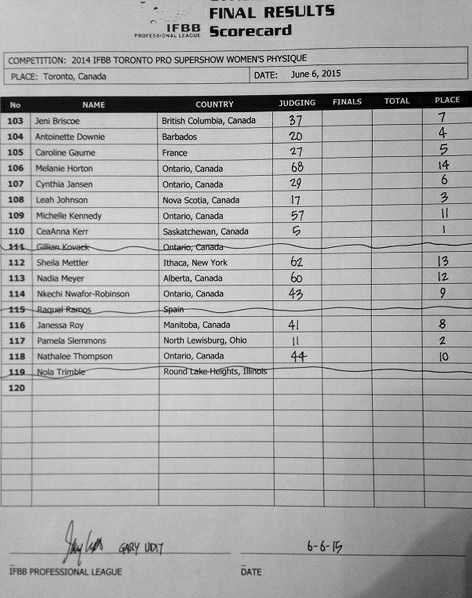 FINAL RESULTS
IFBB Scorecard
PROFESSIONAL LEAGUE
COMPETITION: 2014 IFBB TORONTO PRO SUPERSHOW WOMEN'S PHYSIQUE
PLACE: Toronto, Canada DATE: June 6, 2015
No NAME COUNTRY JUDGING FINALS TOTAL PLACE
103 Jeni Briscoe British Columbia, Canada 37 7
104 Antoinette Downie Barbados 20 4
105 Caroline Gaume France 27 5
106 Melanie Horton Ontario, Canada 68 14
107 Cynthia Jansen Ontario, Canada 29 6
108 Leah Johnson Nova Scotia, Canada 17 3
109 Michelle Kennedy Ontario, Canada 57 11
110 CeaAnna Kerr Saskatchewan, Canada 5 1
111 Gillian Kovack Ontario, Canada
112 Sheila Mettler Ithaca, New York 62 13
113 Nadia Meyer Alberta, Canada 60 12
114 Nkechi Nwafor-Robinson Ontario, Canada 43 9
115 Raquel Ramos Spain
116 Janessa Roy Manitoba, Canada 41 8
117 Pamela Slemmons North Lewisburg, Ohio 11 2
118 Nathalee Thompson Ontario, Canada 44 10
119 Nola Trimble Round Lake Heights, Illinois
120
GARY UDIT 6-6-15
IFBB PROFESSIONAL LEAGUE DATE